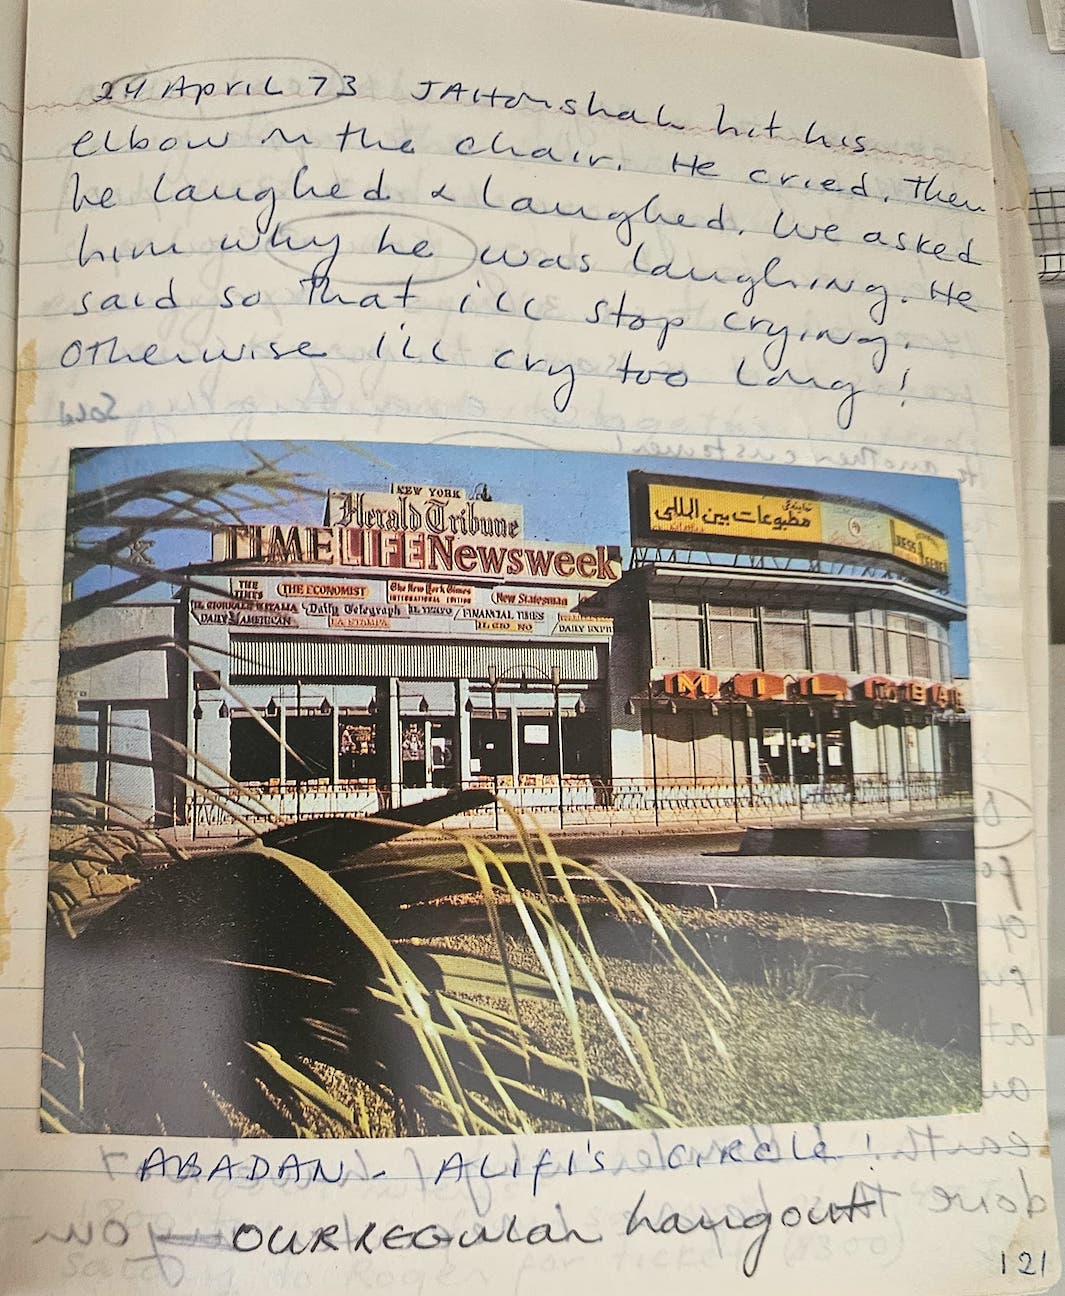 24 April 73 JAHanshah hit his
elbow on the chair. He cried, then
he laughed & laughed. We asked
him why he was laughing. He
said so that ill stop crying.
Otherwise I'll cry too long!
Sold
to another customer!
NEW YORK
Herald Tribune
TIME LIFE Newsweek
THE TIMES
THE ECONOMIST
The New York Times
INTERNATIONAL EDITION
New Statesman
IL GIORNALE D'ITALIA
Daily Telegraph
FINANCIAL TIMES
DAILY AMERICAN
LA STAMPA
DAILY EXPR
نمایندگی
مطبوعات بین المللی
MILK BAR
ABADAN - ALIFI'S CIRCLE!
OUR REGULAR hangout
121